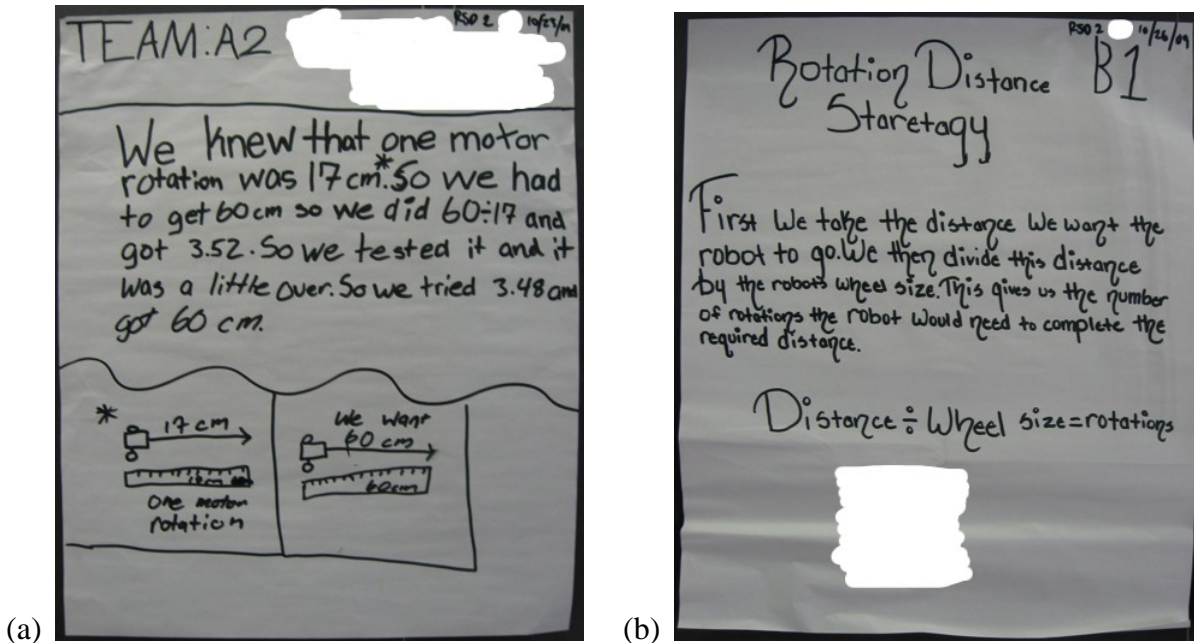 TEAM:A2
RSD 2 10/23/09
We knew that one motor
rotation was 17 cm.* So we had
to get 60 cm so we did 60÷17 and
got 3.52. So we tested it and it
was a little over. So we tried 3.48 and
got 60 cm.
*
17 cm
One motor
rotation
We want
60 cm
60cm
(a)
RSD 2 10/26/09
Rotation Distance B1
Staretagy
First We take the distance We want the
robot to go. We then divide this distance
by the robots wheel size. This gives us the number
of rotations the robot would need to complete the
required distance.
Distance ÷ Wheel size = rotations
(b)